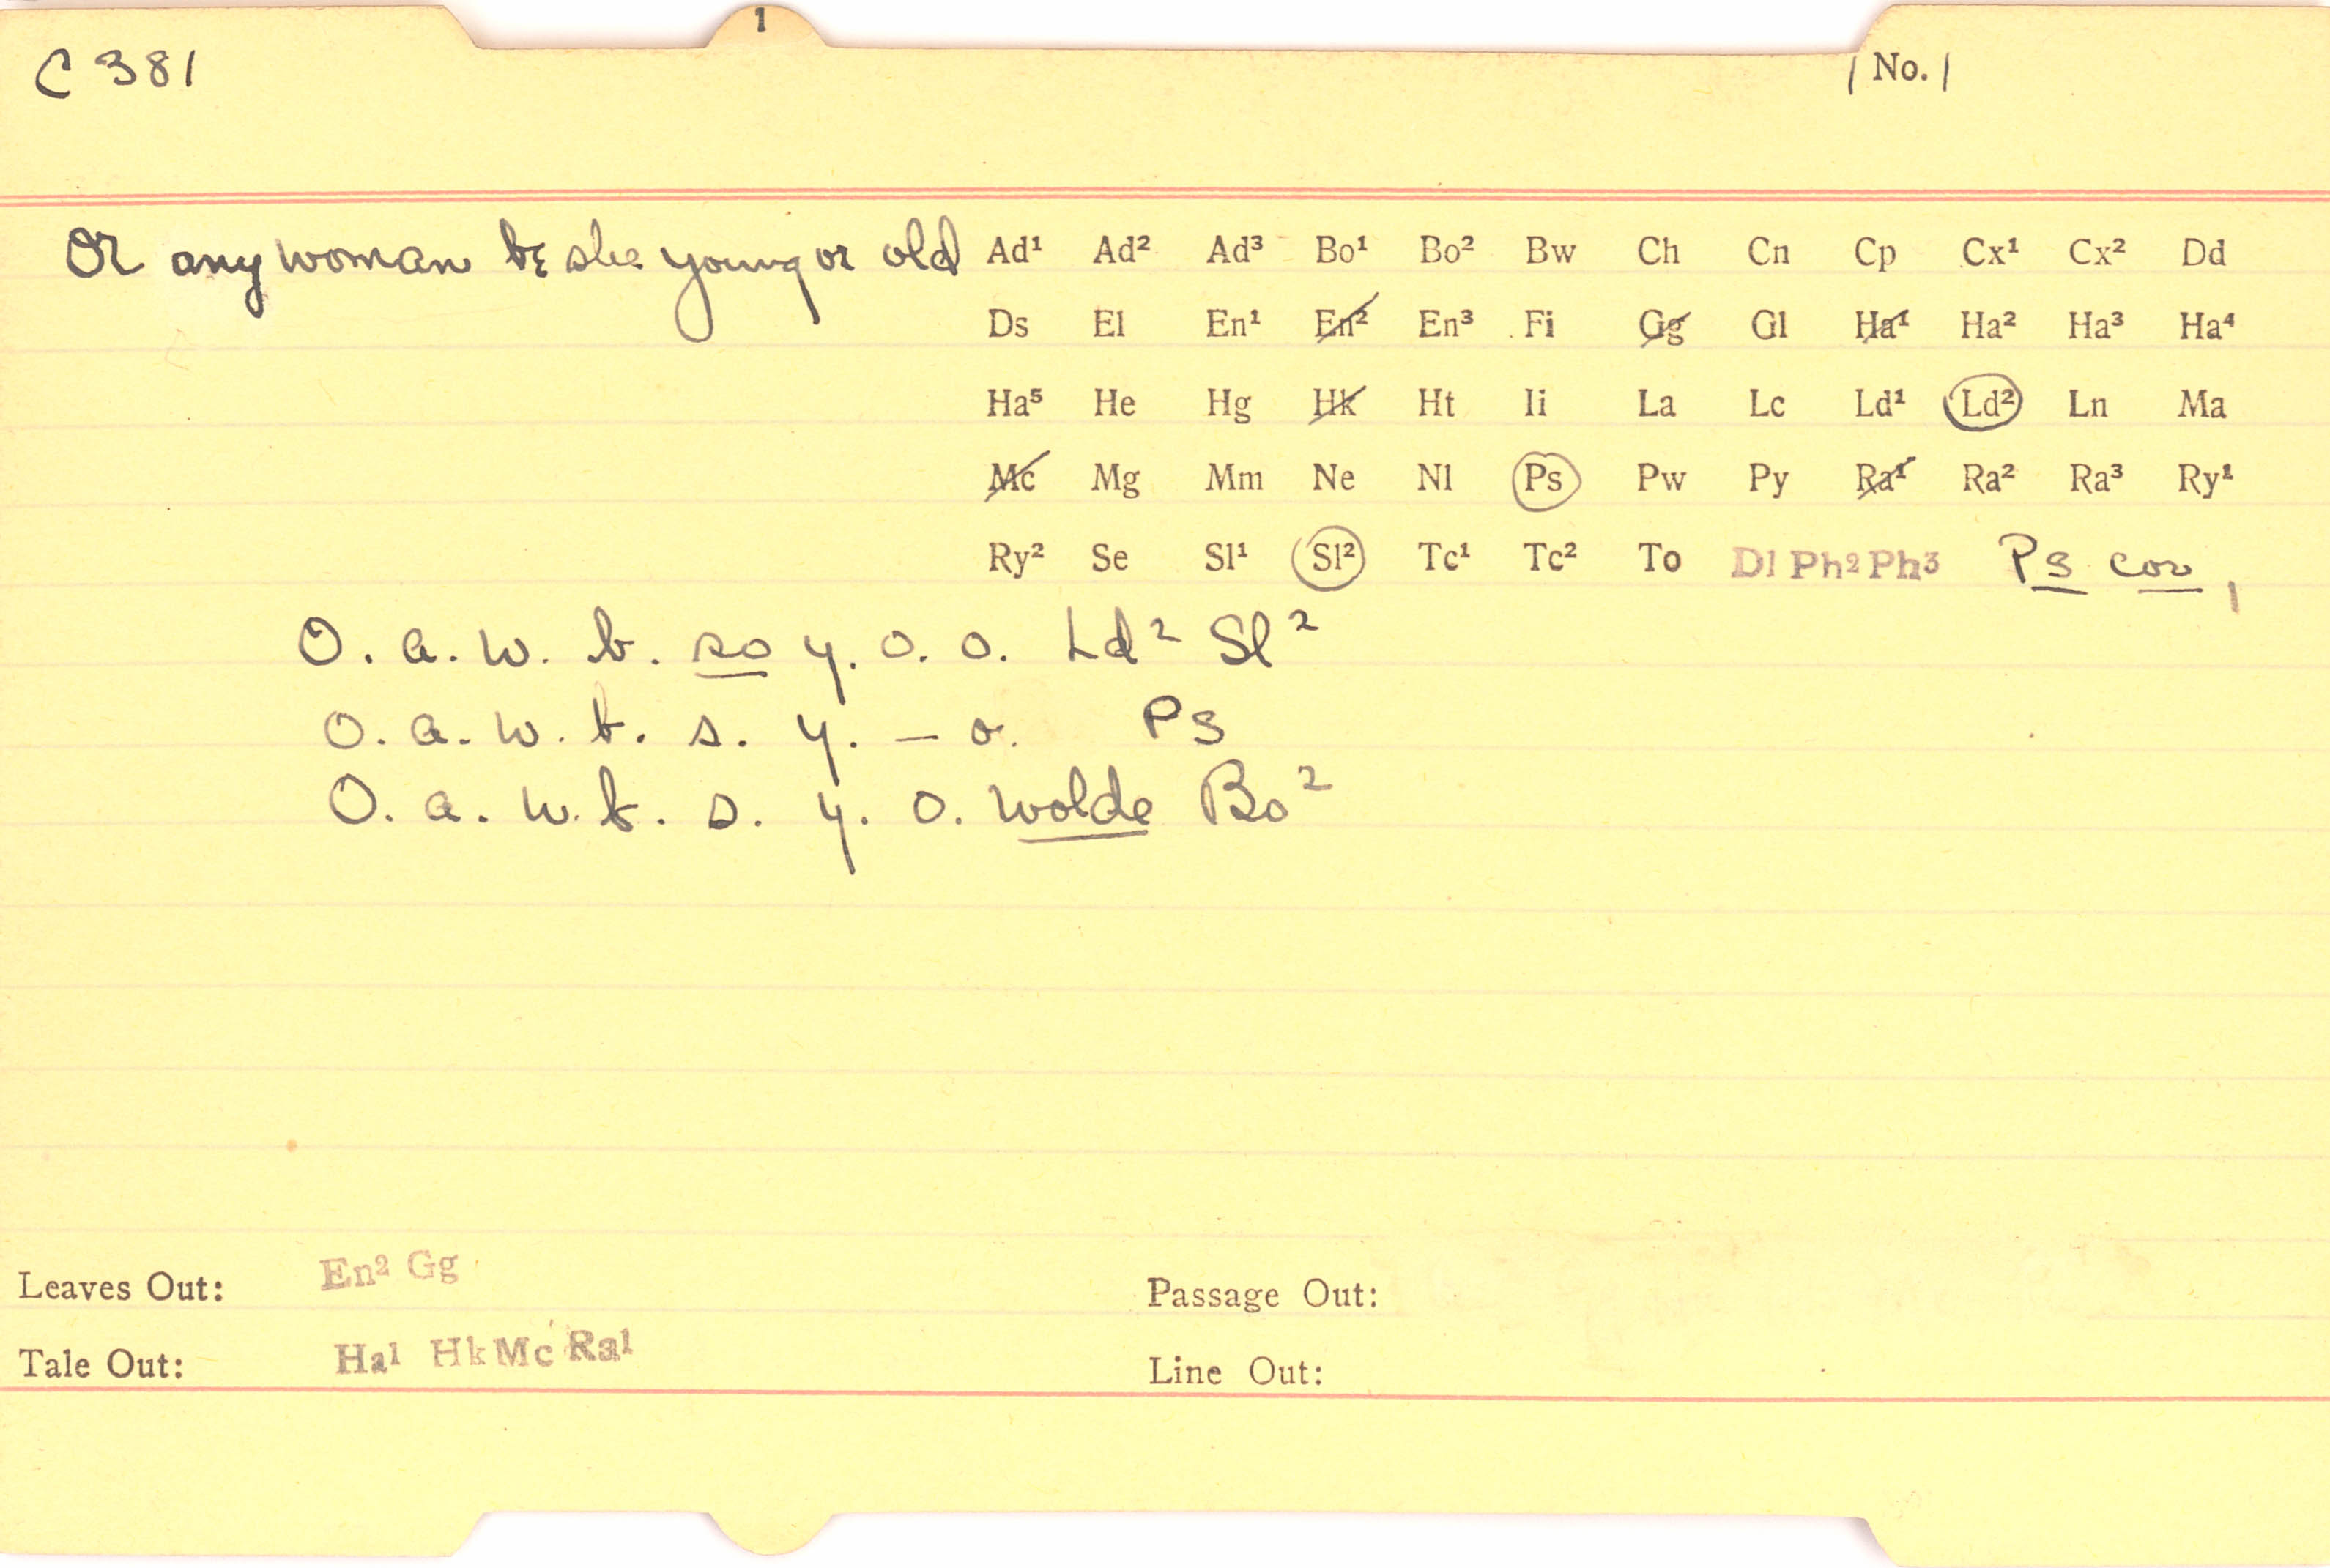 1
C 381
/ No. /
Or any woman be she young or old Ad¹ Ad² Ad³ Bo¹ Bo² Bw Ch Cn Cp Cx¹ Cx² Dd
Ds El En¹ En² En³ Fi Gg Gl Ha¹ Ha² Ha³ Ha⁴
Ha⁵ He Hg Hk Ht Ii La Lc Ld¹ Ld² Ln Ma
Mc Mg Mm Ne Nl Ps Pw Py Ra¹ Ra² Ra³ Ry¹
Ry² Se Sl¹ Sl² Tc¹ Tc² To Dl Ph² Ph³ Ps cov
O. a. w. b. so y. o. o. Ld² Sl²
O. a. w. b. s. y. – o. Ps
O. a. w. b. s. y. o. wolde Bo²
Leaves Out: En² Gg Passage Out:
Tale Out: Ha¹ Hk Mc Ra¹ Line Out: